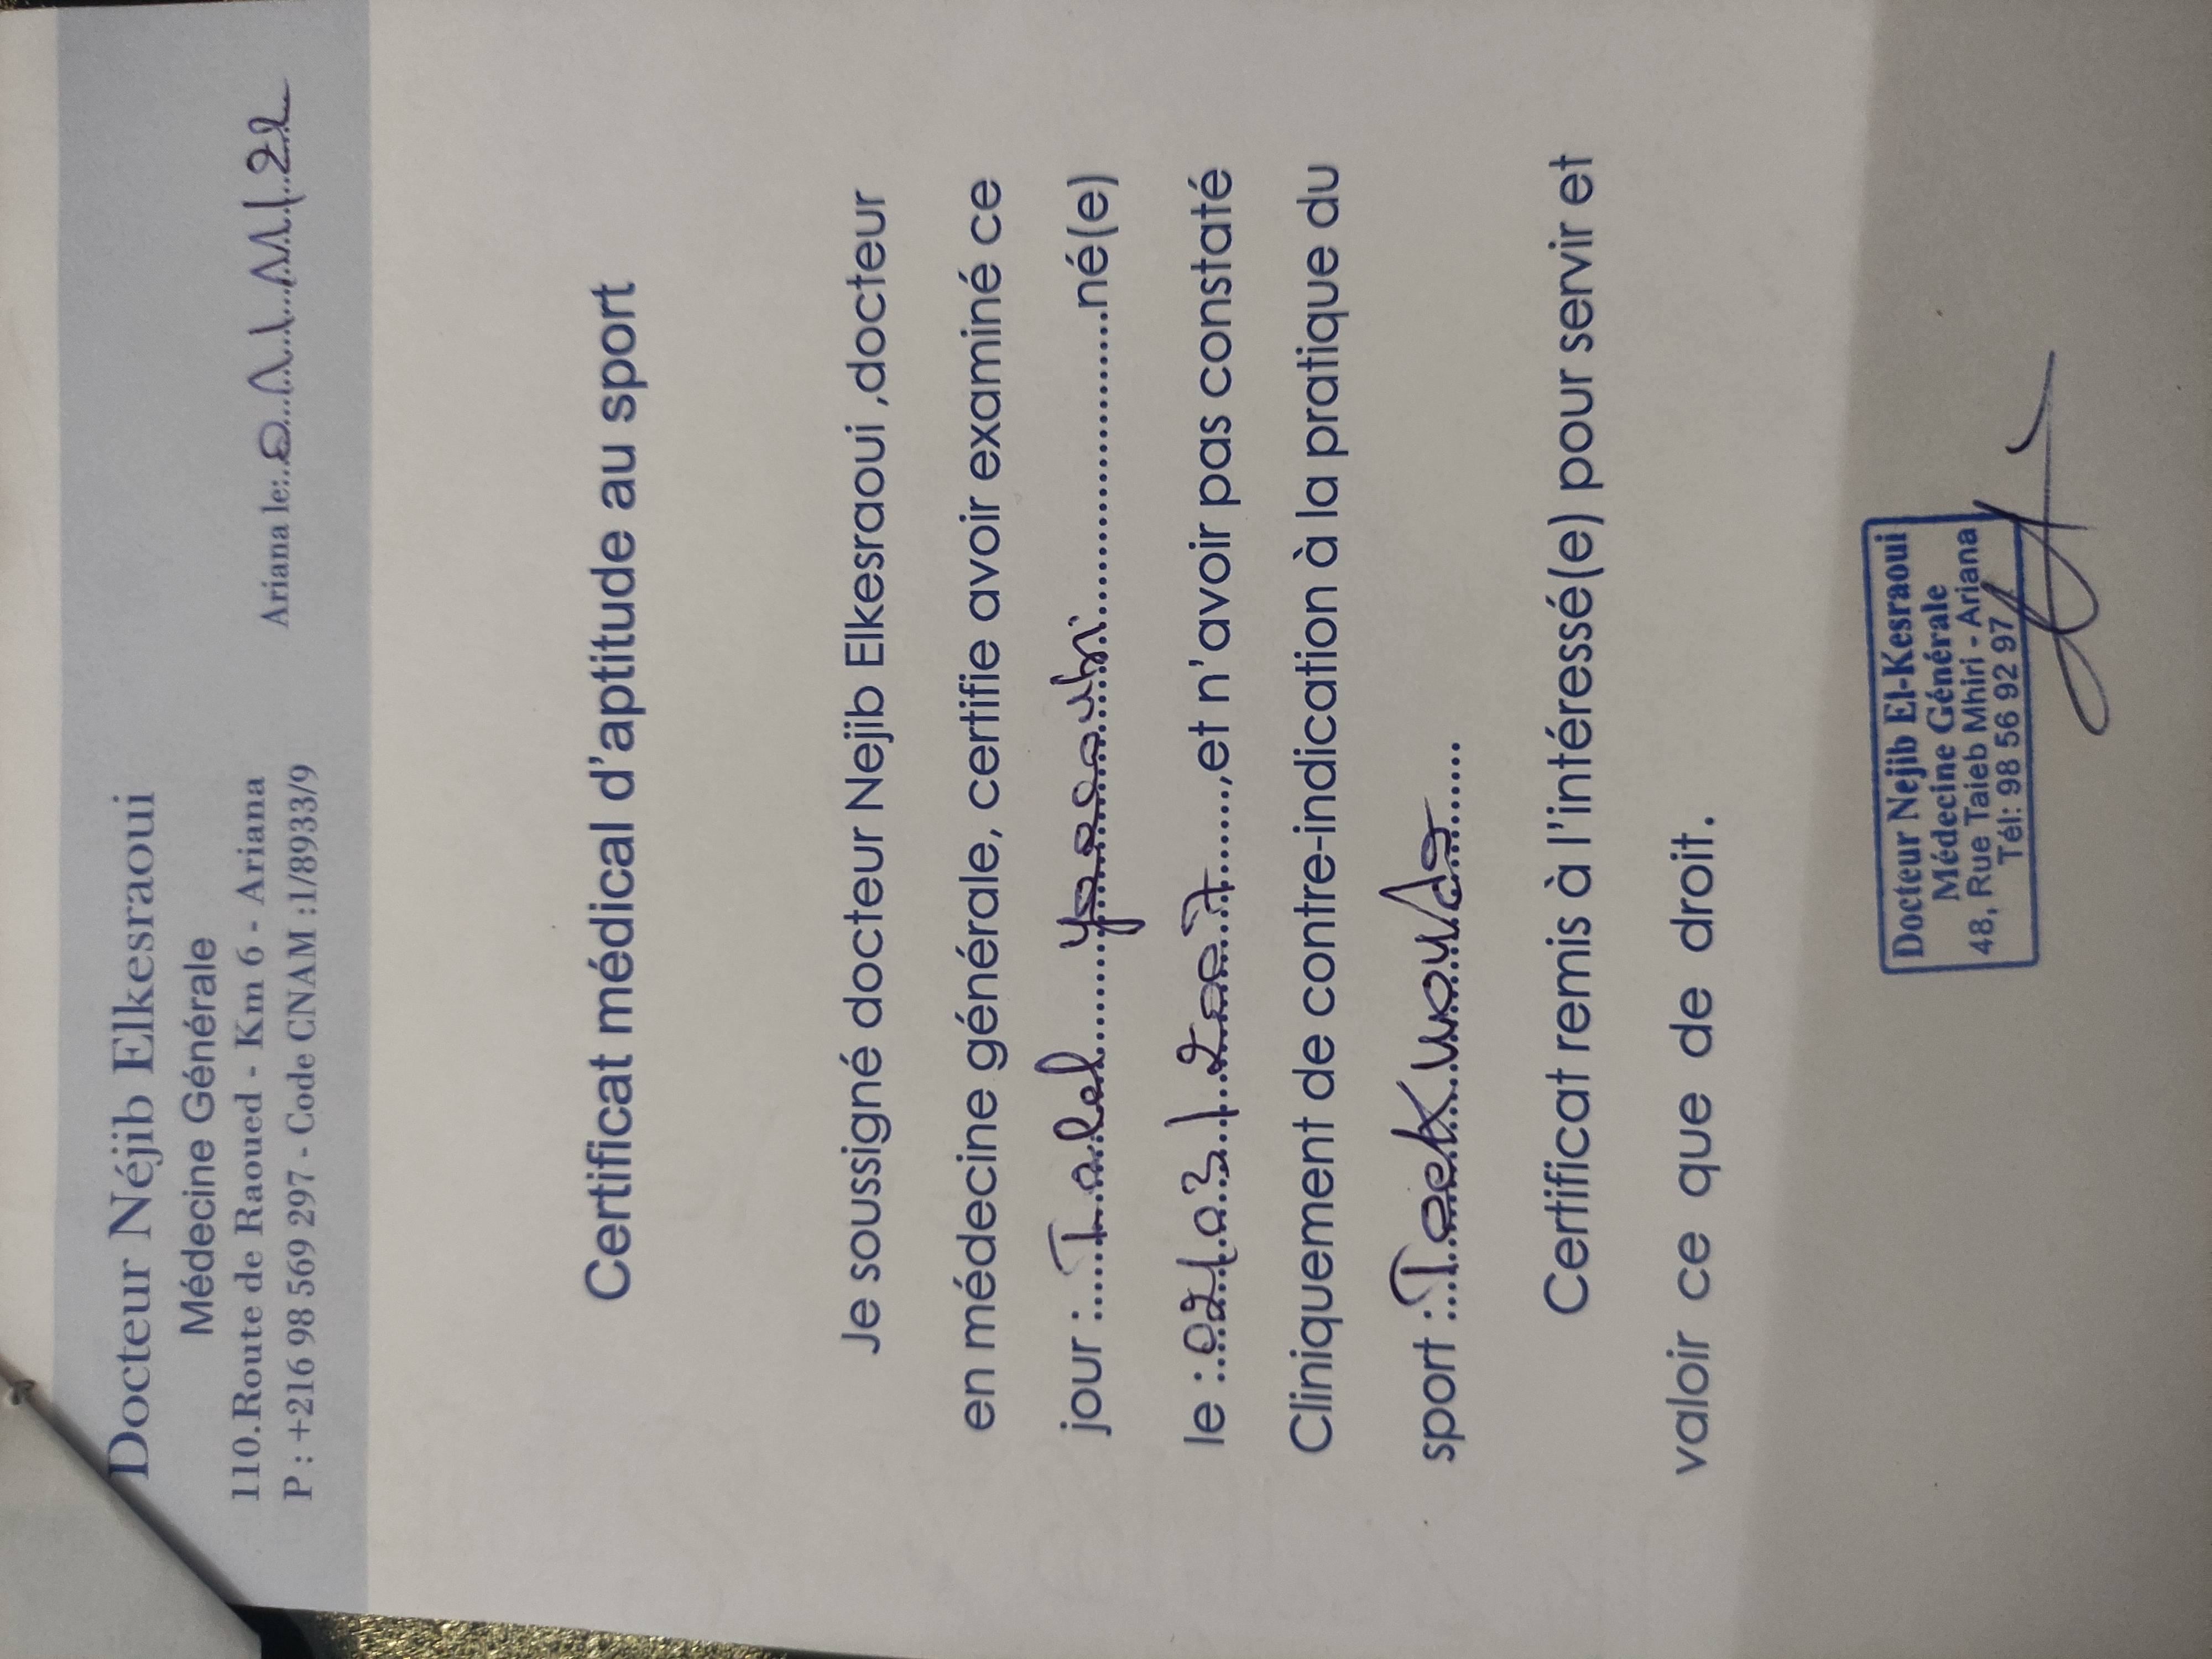 Docteur Néjib Elkesraoui
Médecine Générale
110.Route de Raoued - Km 6 - Ariana
P : +216 98 569 297 - Code CNAM :1/8933/9
Ariana le:..01/11/22
Certificat médical d'aptitude au sport
Je soussigné docteur Nejib Elkesraoui ,docteur
en médecine générale, certifie avoir examiné ce
jour :....Taleb.........né(e)
le :..02/03/2007......,et n'avoir pas constaté
Cliniquement de contre-indication à la pratique du
sport :..Taekwondo......
Certificat remis à l'intéressé(e) pour servir et
valoir ce que de droit.
Docteur Nejib El-Kesraoui
Médecine Générale
48, Rue Taieb Mhiri - Ariana
Tél: 98 56 92 97